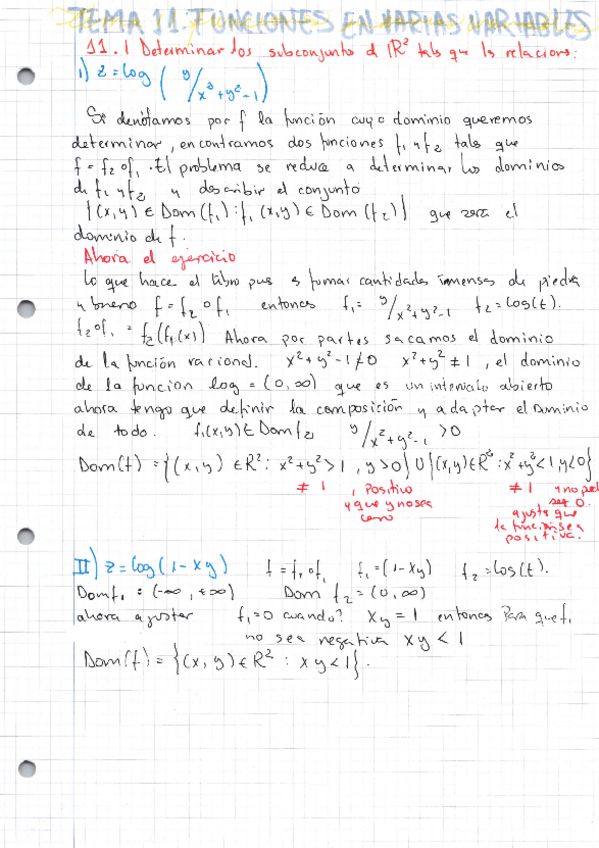 TEMA 11. FUNCIONES EN VARIAS VARIABLES
11.1 Determinar los subconjunto d ℝ² tals que ls relacions:
i) z = log ( y/x²+y²-1 )
Si denotamos por f la función cuyo dominio queremos
determinar, encontramos dos funciones f₁ y f₂ tals que
f = f₂ o f₁. El problema se reduce a determinar los dominios
de f₁ y f₂ y describir el conjunto
{(x,y) ∈ Dom(f₁) : f₁(x,y) ∈ Dom(f₂)} que será el
dominio de f.
Ahora el ejercicio
Lo que hace el libro pues es fumar cantidades inmensas de piedra
y bueno f = f₂ o f₁ entonces f₁ = y/x²+y²-1 f₂ = log(t).
f₂ o f₁ = f₂(f₁(x)) Ahora por partes sacamos el dominio
de la función racional. x²+y²-1≠0 x²+y²≠1, el dominio
de la función log = (0,∞) que es un intervalo abierto
ahora tengo que definir la composición y adapter el Dominio
de todo. f₁(x,y) ∈ Domf₂ y/x²+y²-1 >0
Dom(f) = {(x,y) ∈ ℝ² : x²+y²>1, y>0} U {(x,y) ∈ ℝ² : x²+y²<1, y<0}
≠ 1 , Positivo ≠ 1 y no
y que y no sea ser 0.
cero ajusto que
la función sea
positiva.
II) z = log(1-xy) f = f₂ o f₁ f₁ = (1-xy) f₂ = log(t).
Domf₁ = (-∞, +∞) Dom f₂ = (0,∞)
ahora ajustar f₁=0 cuando? xy = 1 entonces Para que f₁
no sea negativa xy < 1
Dom(f) = {(x,y) ∈ ℝ² : xy<1}.